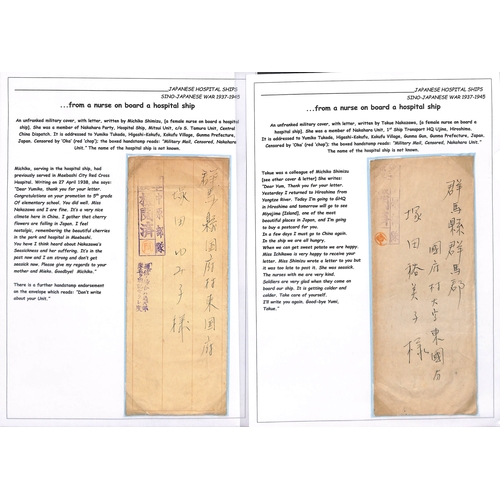 JAPANESE HOSPITAL SHIPS
SINO-JAPANESE WAR 1937-1945
...from a nurse on board a hospital ship
An unfranked military cover, with letter, written by Michiko Shimizu, [a female nurse on board a hospital
ship]. She was a member of Nakahara Party, Hospital Ship, Mitsui Unit, c/o S. Tamura Unit, Central
China Dispatch. It is addressed to Yumiko Takada, Higashi-Kokufu, Kokufu Village, Gunma Prefecture,
Japan. Censored by 'Oka' (red 'chop'); the boxed handstamp reads: "Military Mail, Censored, Nakahara
Unit." The name of the hospital ship is not known.
Michiko, serving in the hospital ship, had
previously served in Maebashi City Red Cross
Hospital. Writing on 27 April 1938, she says:
"Dear Yumiko, thank you for your letter.
Congratulations on your promotion to 5th grade
Of elementary school. You did well. Miss
Nakazawa and I are fine. It's a very nice
climate here in China. I gather that cherry
flowers are falling in Japan. I feel
nostalgic, remembering the beautiful cherries
in the park and hospital in Maebashi.
You have I think heard about Nakazawa's
Seasickness and her suffering. It's in the
past now and I am strong and don't get
seasick now. Please give my regards to your
mother and Mieko. Goodbye! Michiko."
There is a further handstamp endorsement
on the envelope which reads: "Don't write
about your Unit."
群縣國府村東國府
塚田ゆみ子様
JAPANESE HOSPITAL SHIPS
SINO-JAPANESE WAR 1937-1945
...from a nurse on board a hospital ship
An unfranked military cover, with letter, written by Takue Nakazawa, [a female nurse on board a hospital
ship]. She was a member of Nakahara Unit, 1st Ship Transport HQ Ujina, Hiroshima.
It is addressed to Yumiko Takada, Higashi-Kokufu, Kokufu Village, Gunma Gun, Gunma Prefecture, Japan.
Censored by 'Oka' (red 'chop'); the boxed handstamp reads: "Military Mail, Censored, Nakahara Unit."
The name of the hospital ship is not known.
Takue was a colleague of Michiko Shimizu
[see other cover & letter] She writes:
"Dear Yum. Thank you for your letter.
Yesterday I returned to Hiroshima from
Yangtze River. Today I'm going to GHQ
in Hiroshima and tomorrow will go to
Miyajima [Island], one of the most
beautiful places in Japan, and I'm going
to buy a postcard for you.
In a few days I must go to China
again.
In the ship we are all hungry.
When we can get sweet potato we are happy.
Miss Ichikawa is very happy to receive your
letter. Miss Shimizu wrote a letter to you but
it was too late to post it. She was seasick.
The nurses with me are very kind.
Soldiers are very glad when they came on
board our ship. It is getting colder and
colder. Take care of yourself.
I'll write you again. Good-bye Yumi,
Takue."
群馬縣群馬郡
國府村大字東國府
塚田裕美子様